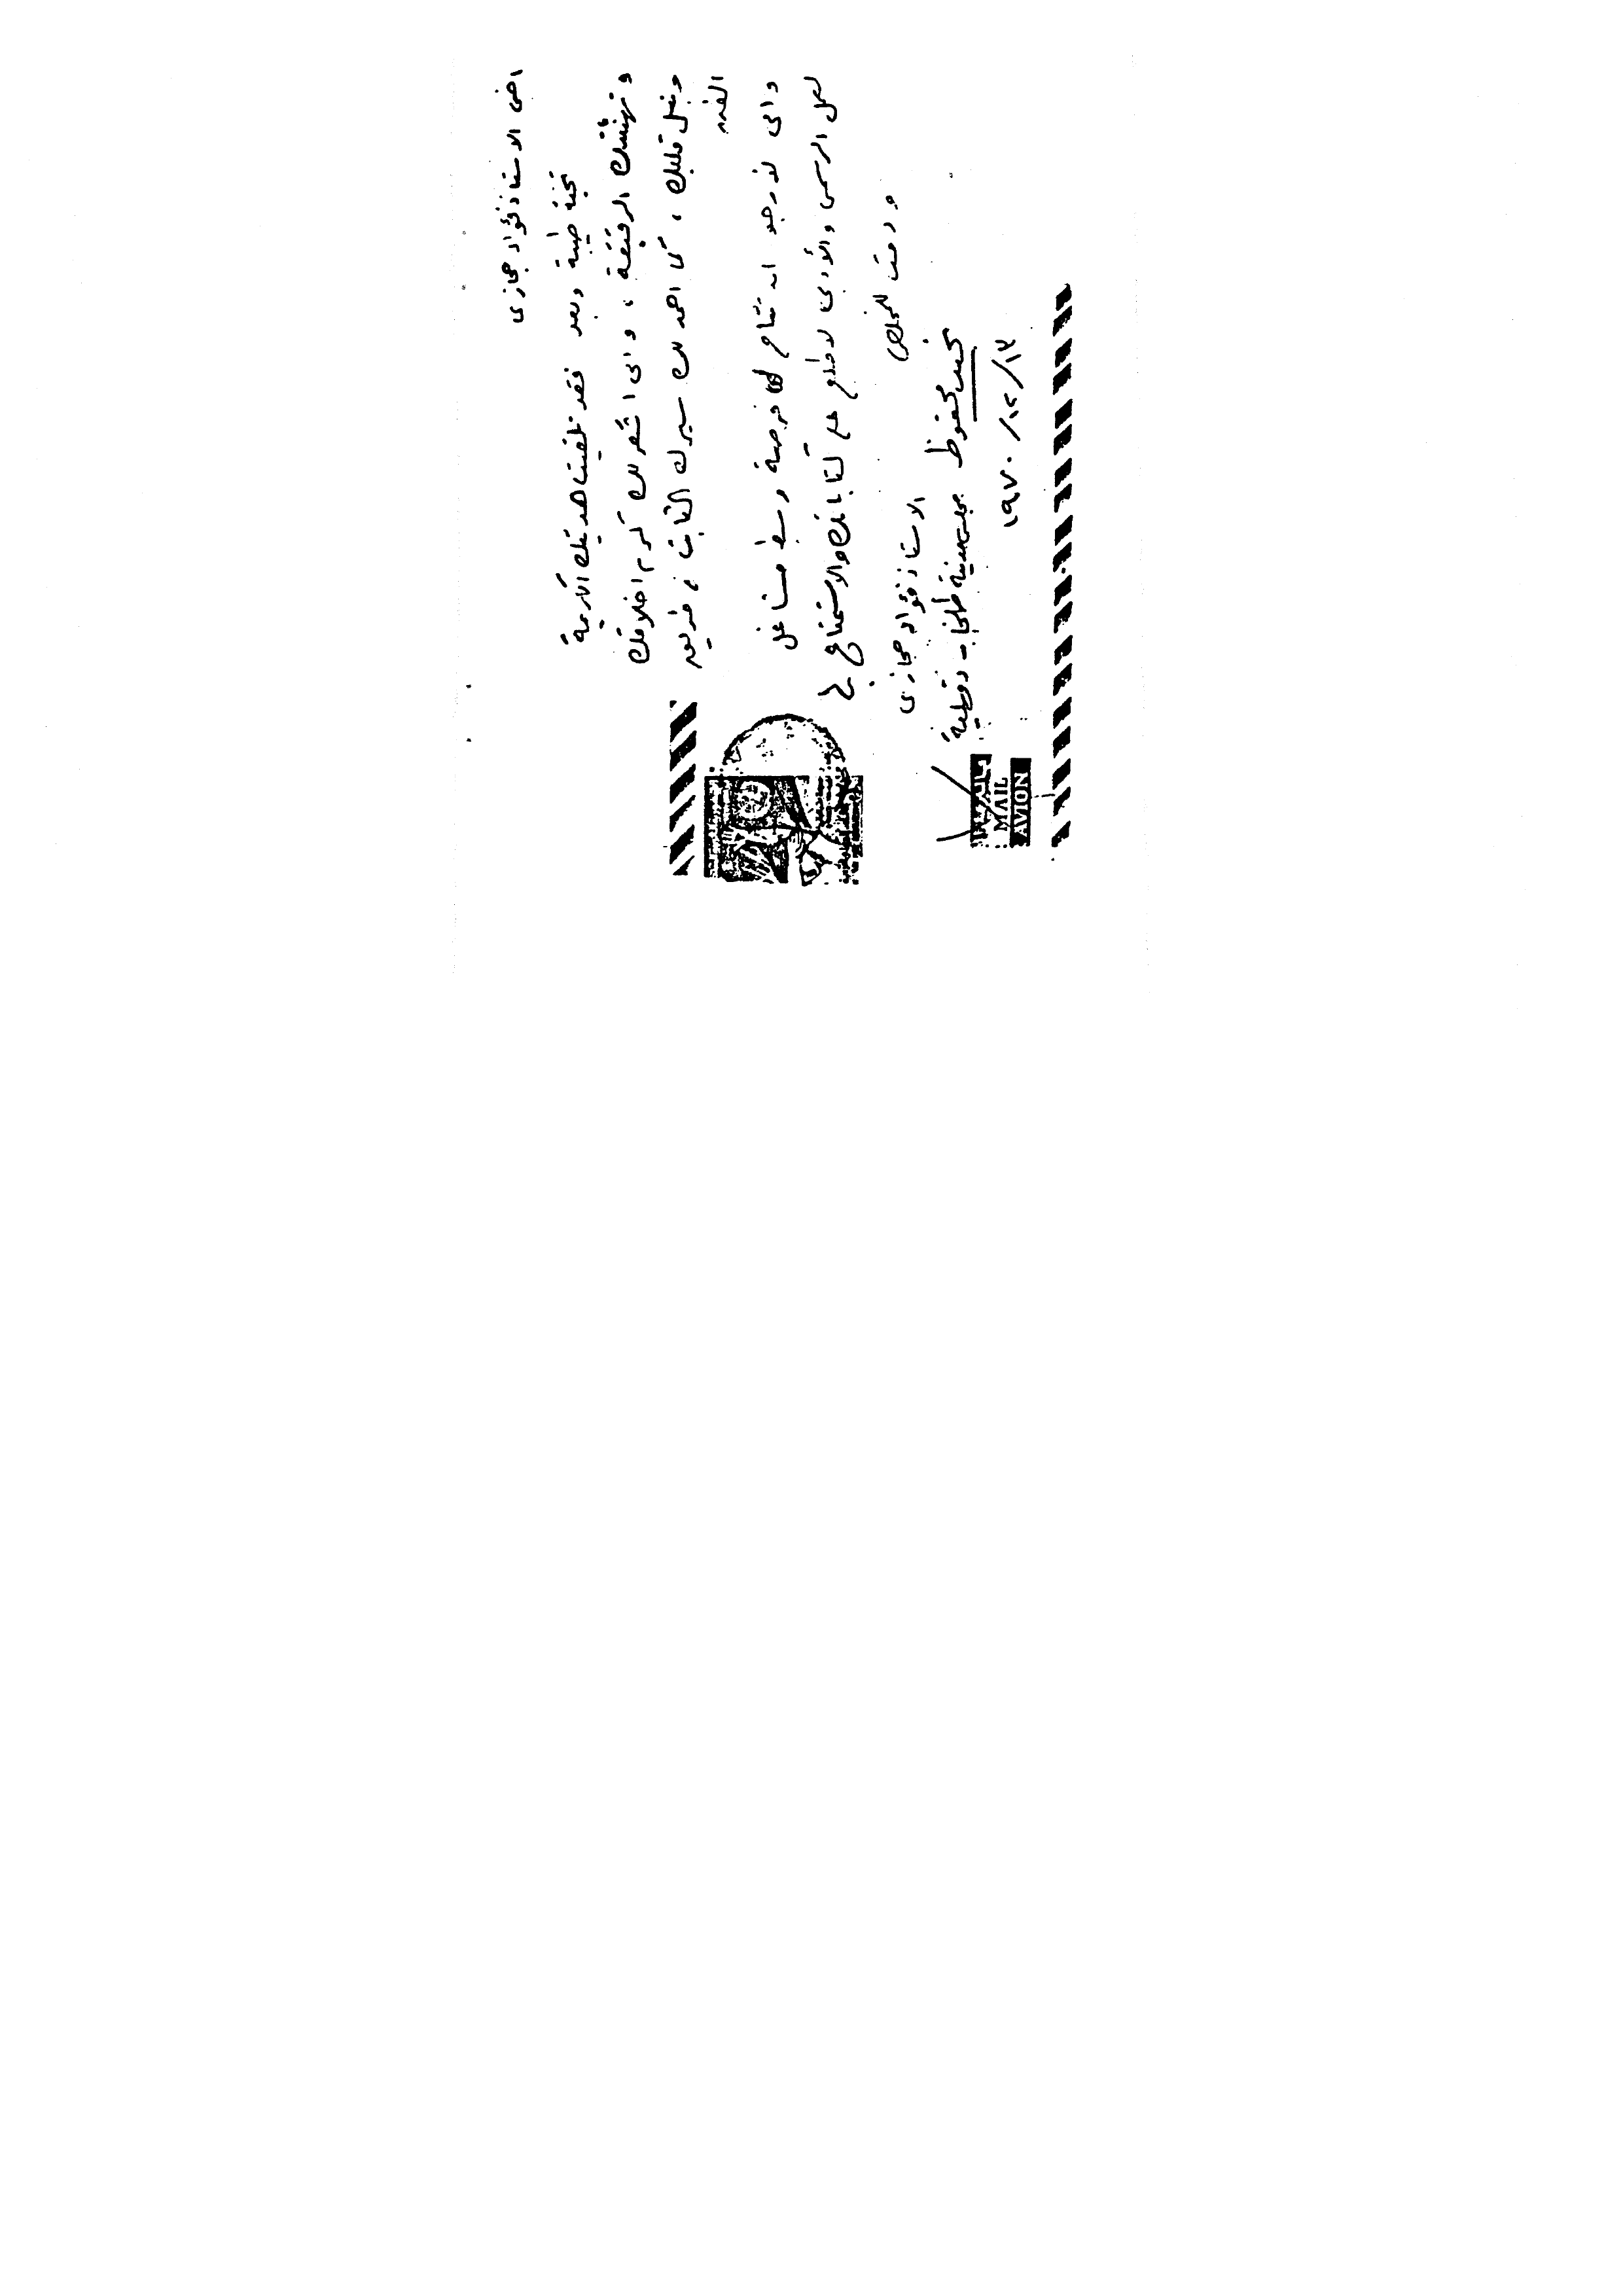 اخى الاستاذ فؤاد حجازى
تحية طيبة وبعد فقد تلقيت هديتك الكريمة
وتهنئتك الرقيقة، وانى اشكر لك كرم اخلاقك
ونبل قلبك، كما احمد لك سيرك الثابت فى طريق
الفن
وانى لأرجو ان تتاح لى فرصة وسط مشاغل
العمل الرسمى والأدبى لاطلع على كتاباتك والاستمتاع بها
ودمت للمخلص
نجيب محفوظ
١٩٧٠/١٢/١٣
الاستاذ فؤاد حجازى
مجلس مدينة طلخا - دقهلية
MAIL
AVION